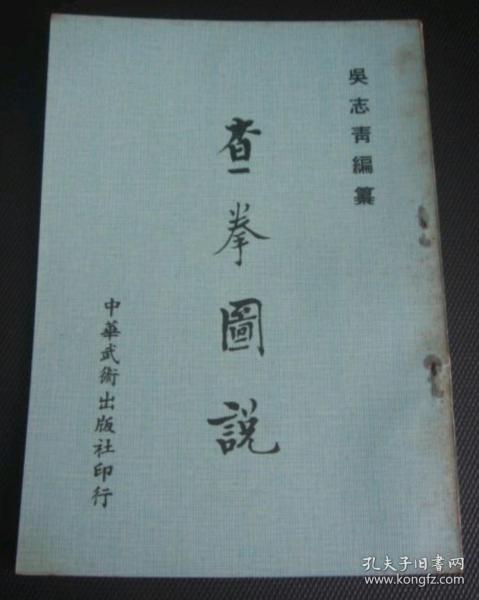 吳志青編纂
查拳圖說
中華武術出版社印行
孔夫子旧书网
www.kongfz.com